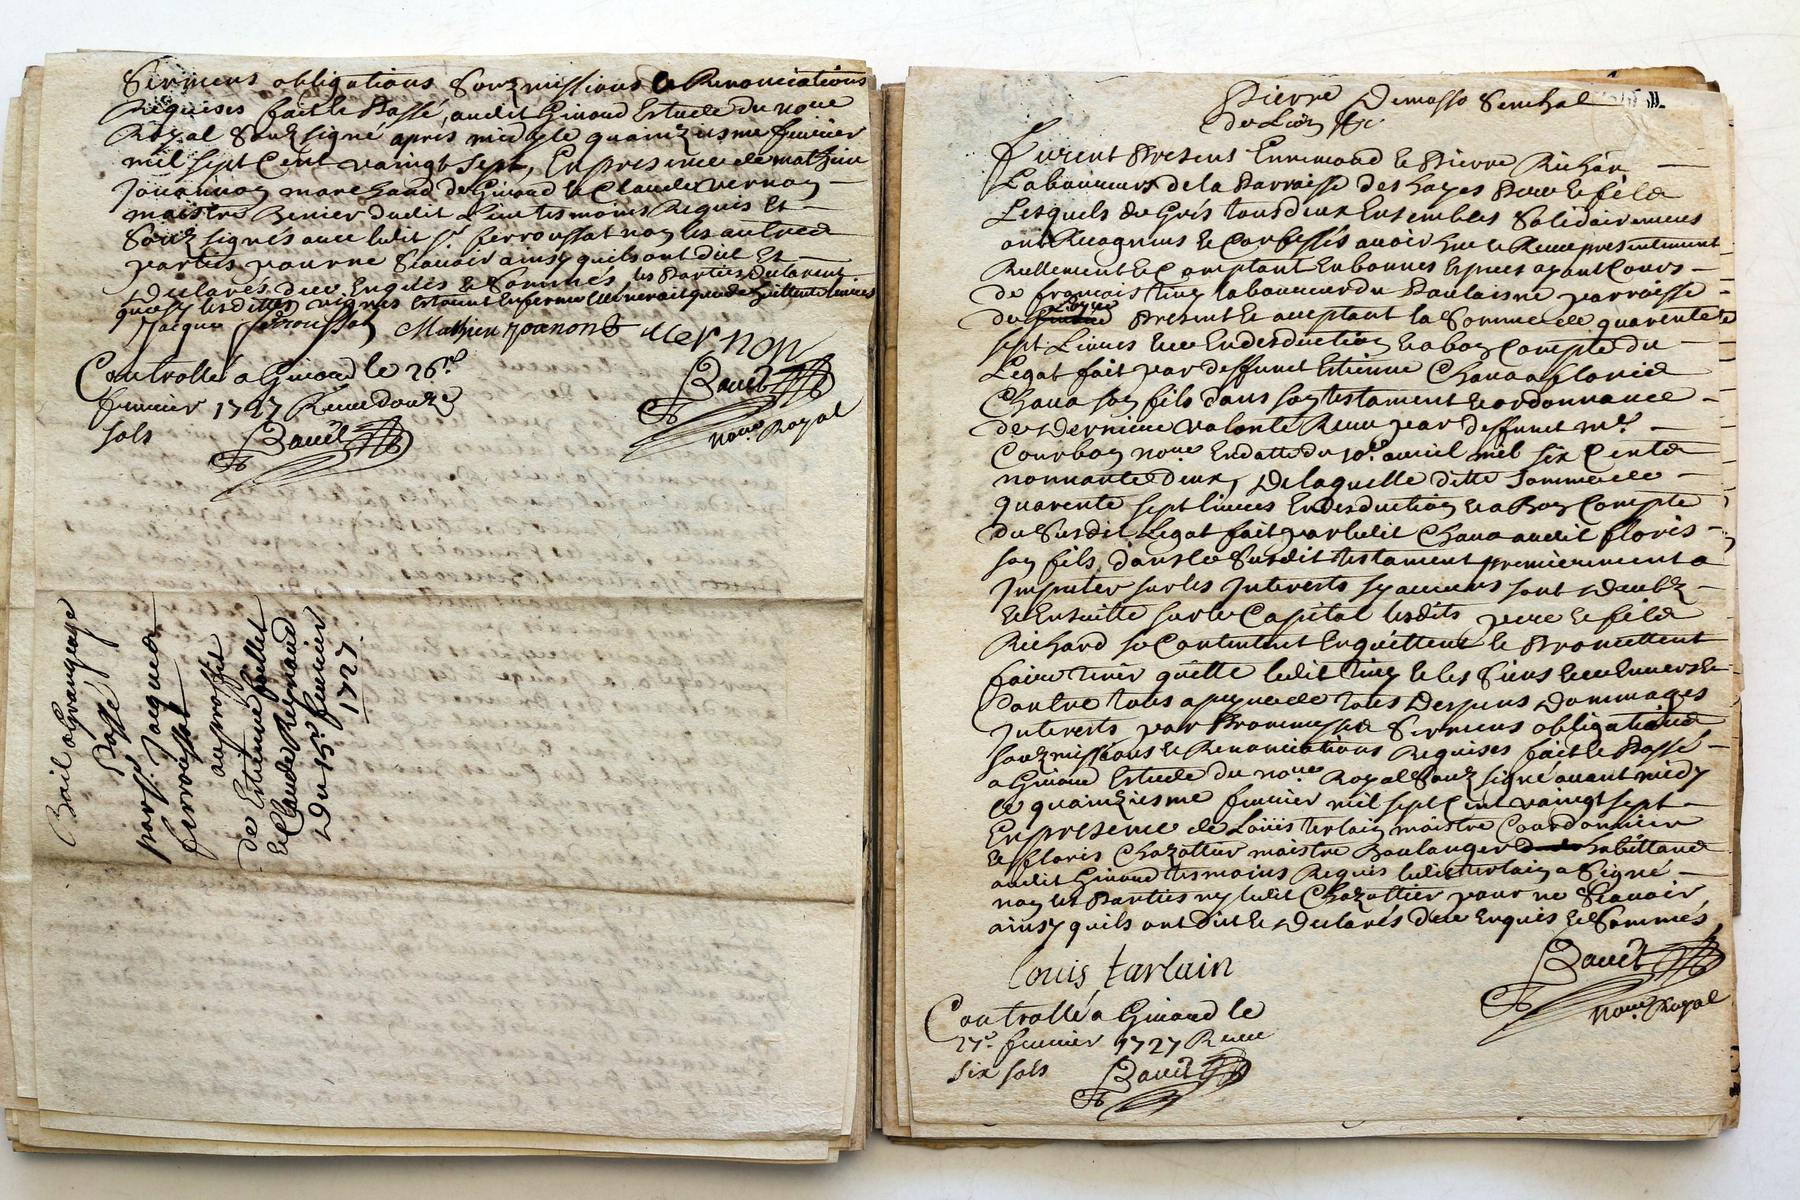 Sermens obligations Souzmissions & Renonciations
Requises fait & Passé, audit Giraud Estude du no.re
Royal Souz signé apres midy le quainziesme feuvrier
mil sept Cent vaingt sept, En presence de mathieu
Jouannon marchand de Giraud & Claude Vernon
maistre Dudit Lieu tesmoins Requis Et
Souz signés avec ledit s.r ferroussat non les autres
parties pour ne Scauoir ainsy quils ont dit Et
Declarés düe Enquis & Sommés les Parties Declarent
Jacque ferroussat Mathieu Jouanond Vernon
Controllé a Giraud le 26.e
feuvrier 1727 Receu douze
sols Bauet
Bauet
no.re Royal
Bail a grangeage
Passé
par s.r Jacques
ferroussat
au proffit
de Estienne
& Claude Reynaud
Du 15.e feuvrier
1727
Pierre Demasso Senchal
de Lion &c
Furent Presens Ennemond & Pierre Richar
Laboureurs de la Parroisse des hayes Pere & fils
Lesquels de Grés tous deux Ensembles Solidairement
ont Recognus & Confessés auoir heu & Receu presentement
Reellement & Comptant En bonnes Especes ayant Cours
de françois laboureur du parroisse
de Present & aceptant la Somme de quarente
sept Liures & ce En desduction & a bon Compte du
Legat fait par deffunct Estienne Chaua a floris
Chaua son fils dans son testament & ordonnance
de Derniere volonté Receu par deffunct m.e
Courbon no.re En datte du 10.e auril mil six Cents
nonnante deux, De laquelle ditte Somme de
quarente sept liures En desduction & a Bon Compte
du Susdit Legat fait par ledit Chaua audit floris
son fils dans le Susdit testament premierement a
Imputer sur les Interests sy aucuns sont Deubz
& En suitte sur le Capital lesdits pere & fils
Richard se Contentent En quittent & Promettent
faire tenir quitte ledit & les Siens & ce Enuers &
Contre tous a peyne de tous Despens Dommages
Interests par Promesses Sermens obligations
souzmissions & Renonciations Requises fait & Passé
a Giraud Estude du no.re Royal Souz signé auant midy
le quainziesme feuvrier mil sept Cent vaingt sept
En presence de Louis terlain maistre Courdonnier
& floris Chazottier maistre Boulanger habittant
audit Giraud tesmoins Requis ledit terlain a Signé
non les Parties ny ledit Chazottier pour ne Scauoir
ainsy quils ont dit & Declarés düe Enquis & Sommés
Louis tarlain
Bauet
no.re Royal
Controllé a Giraud le
27.e feuvrier 1727 Receu
six sols Bauet